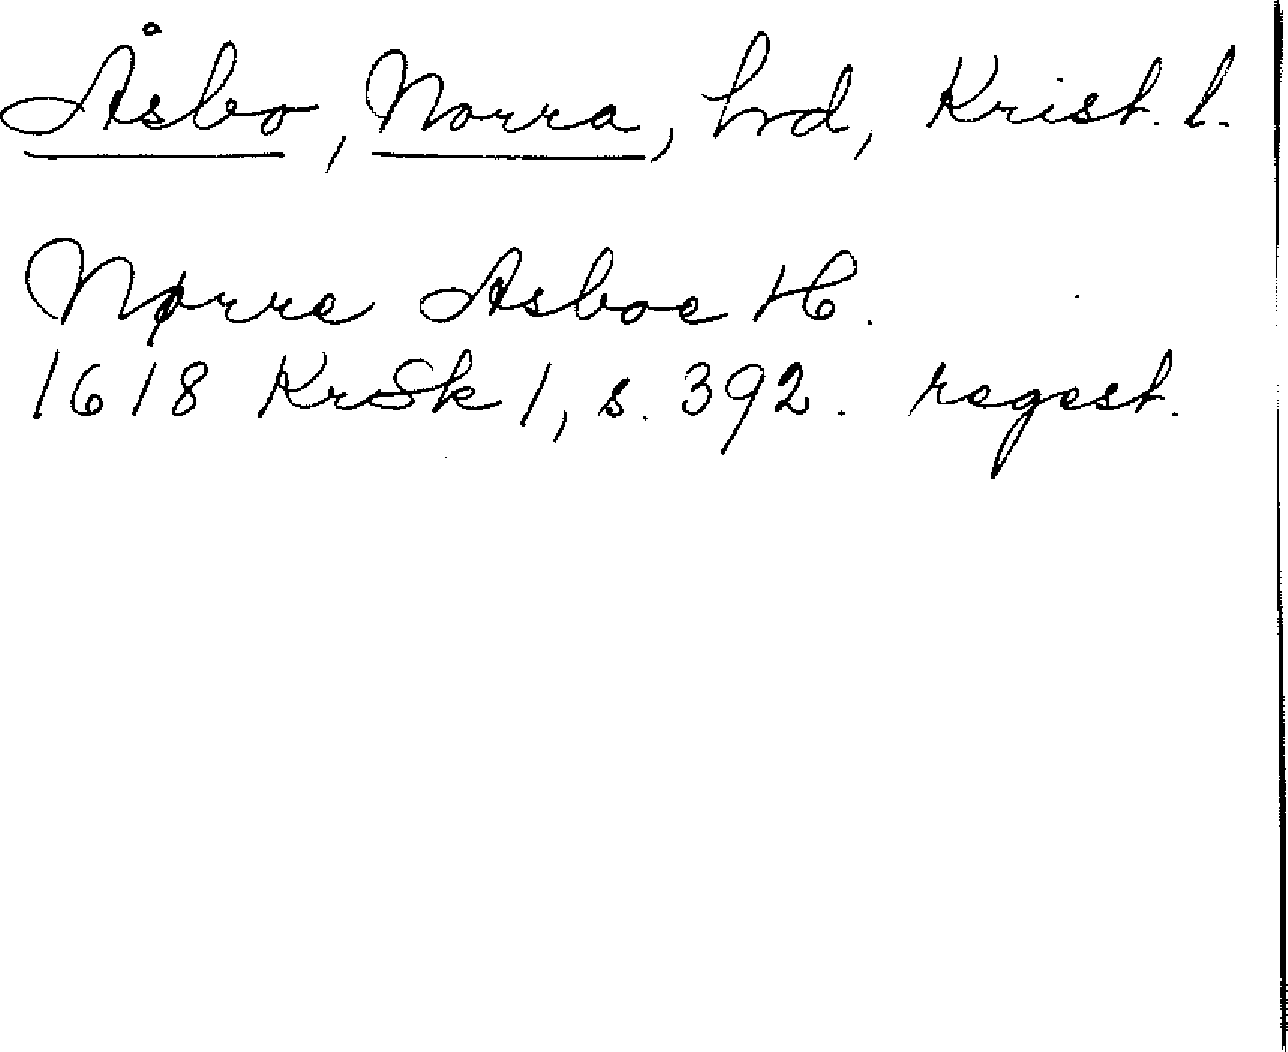 Åsbo, Norra, hrd, Krist. l.
Nørre Asboe H.
1618 KrSk 1, s. 392. regest.